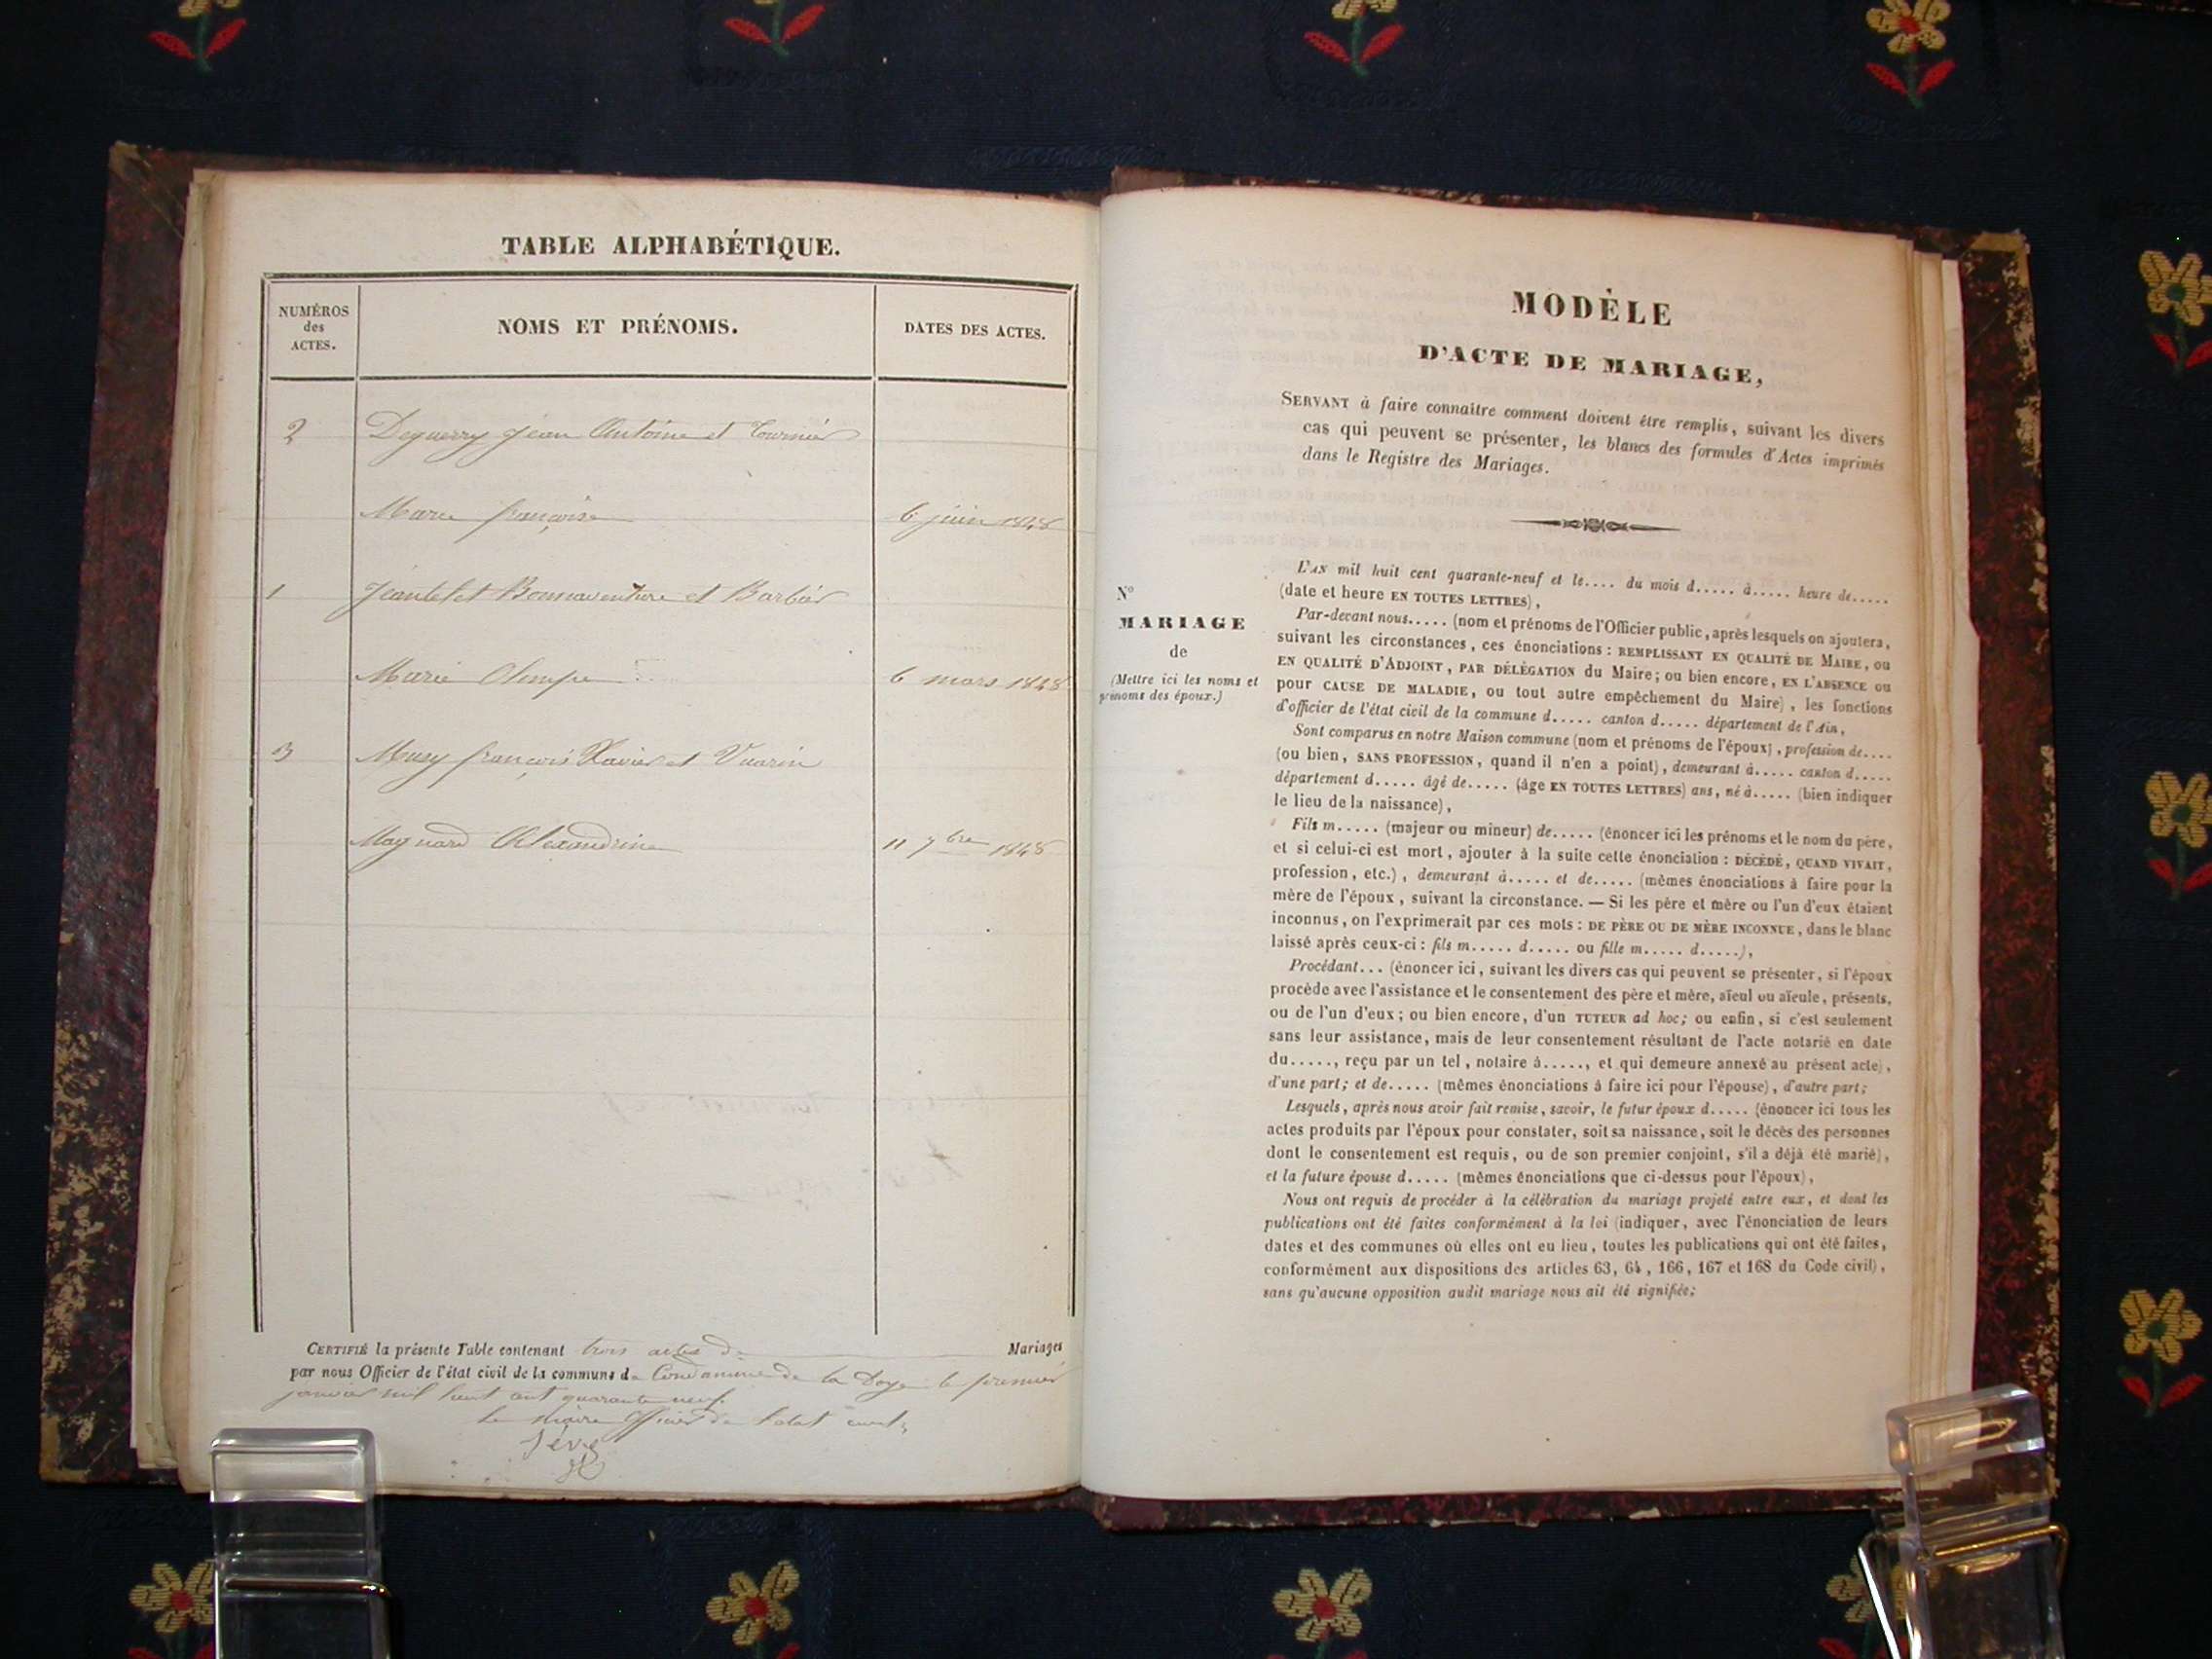 TABLE ALPHABÉTIQUE.
NUMÉROS
des
ACTES.
NOMS ET PRÉNOMS.
DATES DES ACTES.
2 Deguerry Jean Antoine et Tournier
Marie françoise 6 juin 1848
1 Jeantet Bonnaventure et Barbier
Marie Olimpe 6 mars 1848
3 Musy françois Xavier et Vuarin
Magnard Alexandrine 11 7bre 1848
CERTIFIÉ la présente Table contenant trois actes de Mariages
par nous Officier de l'état civil de la commune de Condamine de la Doye le premier
janvier mil huit cent quarante neuf.
Le Maire officier de l'état civil
Sève
MODÈLE
D'ACTE DE MARIAGE,
SERVANT à faire connaître comment doivent être remplis, suivant les divers
cas qui peuvent se présenter, les blancs des formules d'Actes imprimés
dans le Registre des Mariages.
N°
MARIAGE
de
(Mettre ici les noms et
prénoms des époux.)
L'AN mil huit cent quarante-neuf et le.... du mois d..... à..... heure de.....
(date et heure EN TOUTES LETTRES),
Par-devant nous..... (nom et prénoms de l'Officier public, après lesquels on ajoutera,
suivant les circonstances, ces énonciations : REMPLISSANT EN QUALITÉ DE MAIRE, ou
EN QUALITÉ D'ADJOINT, PAR DÉLÉGATION du Maire; ou bien encore, EN L'ABSENCE ou
pour CAUSE DE MALADIE, ou tout autre empêchement du Maire), les fonctions
d'officier de l'état civil de la commune d..... canton d..... département de l'Ain,
Sont comparus en notre Maison commune (nom et prénoms de l'époux), profession de....
(ou bien, SANS PROFESSION, quand il n'en a point), demeurant à..... canton d.....
département d..... âgé de..... (âge EN TOUTES LETTRES) ans, né à..... (bien indiquer
le lieu de la naissance),
Fils m..... (majeur ou mineur) de..... (énoncer ici les prénoms et le nom du père,
et si celui-ci est mort, ajouter à la suite cette énonciation : DÉCÉDÉ, QUAND VIVAIT,
profession, etc.), demeurant à..... et de..... (mêmes énonciations à faire pour la
mère de l'époux, suivant la circonstance. — Si les père et mère ou l'un d'eux étaient
inconnus, on l'exprimerait par ces mots : DE PÈRE OU DE MÈRE INCONNUE, dans le blanc
laissé après ceux-ci : fils m..... d..... ou fille m..... d.....),
Procédant... (énoncer ici, suivant les divers cas qui peuvent se présenter, si l'époux
procède avec l'assistance et le consentement des père et mère, aïeul ou aïeule, présents,
ou de l'un d'eux; ou bien encore, d'un TUTEUR ad hoc; ou enfin, si c'est seulement
sans leur assistance, mais de leur consentement résultant de l'acte notarié en date
du....., reçu par un tel, notaire à....., et qui demeure annexé au présent acte),
d'une part; et de..... (mêmes énonciations à faire ici pour l'épouse), d'autre part;
Lesquels, après nous avoir fait remise, savoir, le futur époux d..... (énoncer ici tous les
actes produits par l'époux pour constater, soit sa naissance, soit le décès des personnes
dont le consentement est requis, ou de son premier conjoint, s'il a déjà été marié),
et la future épouse d..... (mêmes énonciations que ci-dessus pour l'époux),
Nous ont requis de procéder à la célébration du mariage projeté entre eux, et dont les
publications ont été faites conformément à la loi (indiquer, avec l'énonciation de leurs
dates et des communes où elles ont eu lieu, toutes les publications qui ont été faites,
conformément aux dispositions des articles 63, 64, 166, 167 et 168 du Code civil),
sans qu'aucune opposition audit mariage nous ait été signifiée;